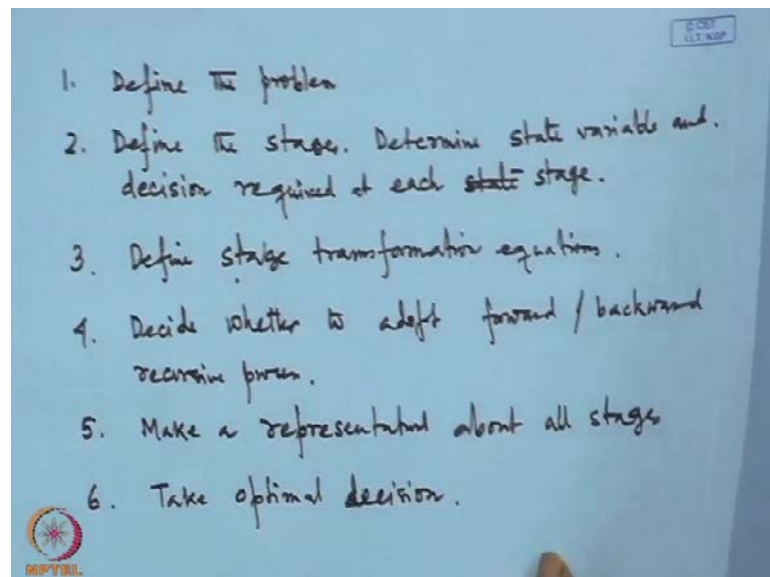 © CET
I.I.T. KGP
1. Define The problem
2. Define The stages. Determine state variable and.
decision required at each state stage.
3. Define stage transformation equations.
4. Decide whether to adopt forward / backward
recursive
5. Make a about all stages
6. Take optimal decision.
NPTEL